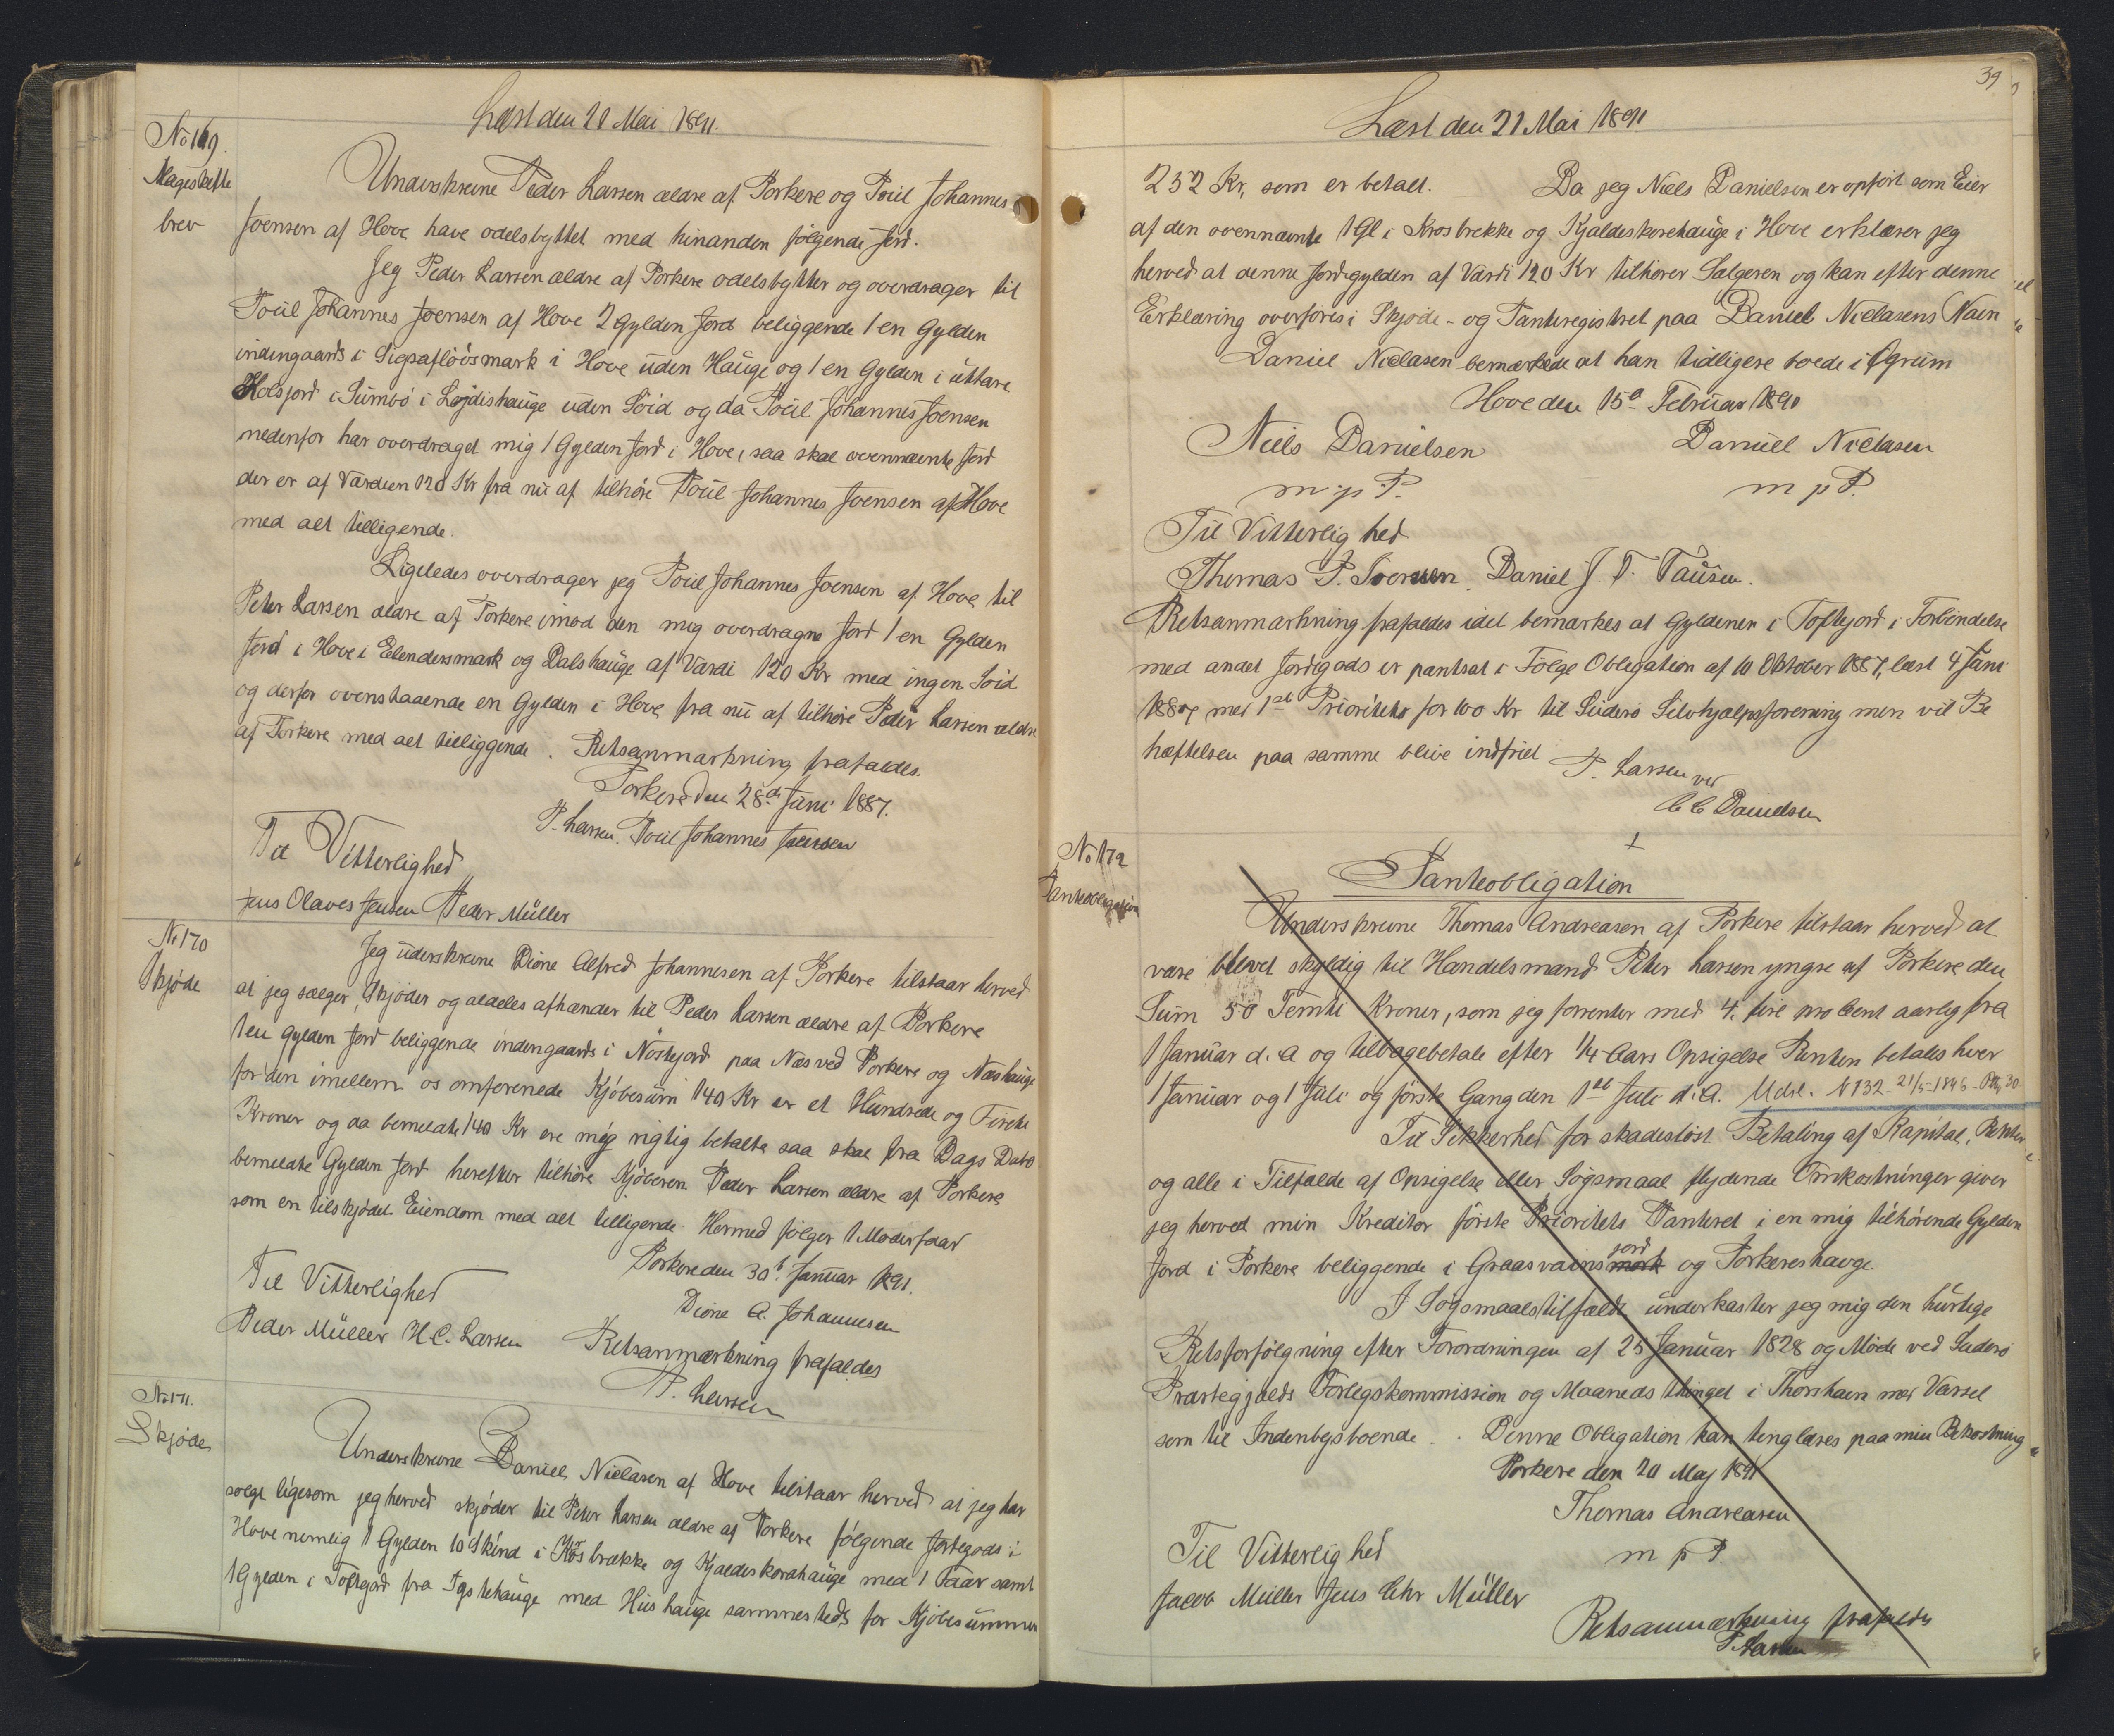 Læst den 21 Mai 1891.
No 169.
Mageskifte
brev
Underskrevne Peder Larsen ældre af Porkere og Poul Johannes
Joensen af Hove have odelsbyttet med hinanden følgende Jord.
Jeg Peder Larsen ældre af Porkere odelsbytter og overdrager til
Poul Johannes Joensen af Hove 2 Gylden Jord beliggende 1 en Gylden
indengaards i Sigsaflöðsmark i Hove uden Hauge og 1 en Gylden i uttare
Holsjord i Sumbö i Løjdishauge uden Soid og da Poul Johannes Joensen
nedenfor har overdraget mig 1 Gylden Jord i Hove, saa skal ovennævnte Jord
der er af Værdien 120 Kr fra nu af tilhøre Poul Johannes Joensen af Hove
med alt tilligende.
Ligeledes overdrager jeg Poul Johannes Joensen af Hove til
Peter Larsen ældre af Porkere imod den mig overdragne Jord 1 en Gylden
Jord i Hove i Eilendersmark og Dalshauge af Værdi 120 Kr med ingen Soid
og derfor ovenstaaende en Gylden i Hove fra nu af tilhøre Peder Larsen ældre
af Porkere med alt tilliggende. Retsanmærkning frafaldes.
Porkere den 28de Juni 1887.
P. Larsen. Poul Johannes Joensen
Til Vitterlighed
Jens Olaves Jensen Peder Müller
No 170
Skjøde
Jeg uderskrevne Dione Alfred Johannesen af Porkere tilstaar herved
at jeg sælger, Skjøder og aldeles afhænder til Peder Larsen ældre af Porkere
1 en Gylden Jord beliggende indengaards i Nøstejord paa Næs ved Porkere og Næshauge
for den imellem os omforenede Kjøbesum 140 Kr er et Hundrede og Fireti
Kroner og da bemeldte 140 Kr ere mig rigtig betalte saa skal fra Dags Dato
bemeldte Gylden Jord herefter tilhøre Kjøberen Peder Larsen ældre af Porkere
som en tilskjødet Eiendom med alt tilligende. Hermed følger 1 Moderfaar
Porkere den 30t Januar 1891.
Dione A. Johannesen
Til Vitterlighed
Peder Müller H.C. Larsen
Retsanmærkning frafaldes
P. Larsen
No 171.
Skjøde
Underskrevne Daniel Niclasen af Hove tilstaar herved at jeg har
solgt ligesom jeg herved skjøder til Peter Larsen ældre af Porkere følgende Jordegods i
Hove nemlig 1 Gylden 10 Skind i Krosbrække og Kjaldeskorahauge med 1 Faar samt
1 Gylden i Toftgjord fra Tystehauge med Hushauge sammesteds for Kjøbesummen
39
Læst den 21 Mai 1891
232 Kr, som er betalt. Da jeg Niels Danielsen er opført som Eier
af den ovennævnte 1 Gl i Krosbrekke og Kjaldeskorehauge i Hove erklærer jeg
herved at denne Jordegylden af Værdi 120 Kr tilhører Sælgeren og kan efter denne
Erklæring overføres i Skjøde- og Panteregistret paa Daniel Niclasens Navn
Daniel Niclasen bemærkede at han tidligere boede i Øgrum
Hove den 15d Februar 1890
Niels Danielsen
m.p.P.
Daniel Niclasen
m p P.
Til Vitterlighed
Thomas P. Joensen. Daniel J. T. Pausen.
Retsanmærkning frafaldes idet bemærkes at Gyldenen i Toftejord i Forbindelse
med andet Jordegods er pantsat i Følge Obligation af 10 Oktober 1887, læst 4 Juni
1887 med 1ste Prioritets for 100 Kr til Suderø Selvhjælpsforening men vil Be
hæftelsen paa samme blive indfriet
P. Larsen ved
C C Danielsen
No 172
Panteobligation
Panteobligation
Underskrevne Thomas Andreasen af Porkere tilstaar herved at
være blevet skyldig til Handelsmand Peter Larsen yngre af Porkere den
Sum 50 Femti Kroner, som jeg forrenter med 4, fire pro Cent aarlig fra
1 Januar d. A og tilbagebetale efter 1/4 Aars Opsigelse Renten betales hver
1 Januar og 1 Juli og første Gang den 1ste Juli d. A. Udsl. N 132 21/5-1896
Til Sikkerhed for skadesløst Betaling af Kapital, Renter
og alle i Tilfælde af Opsigelse eller Søgsmaal flydende Omkostninger giver
jeg herved min Kreditor første Prioritets Panteret i en mig tilhørende Gylden
Jord i Porkere beliggende i Graasvainsmark jord og Porkereshavge.
I Søgsmaalstilfælde underkaster jeg mig den hurtige
Retsforfølgning efter Forordningen af 25 Januar 1828 og Møde ved Suderø
Præstegjælds Forligskommission og Maanedsthinget i Thorshavn med Varsel
som til Indenbysboende. Denne Obligation kan tinglæses paa min Bekostning
Porkere den 20 Maj 1891
Thomas Andreasen
m p P.
Til Vitterlighed
Jacob Müller Jens Chr Müller
Retsanmærkning frafaldes
P Larsen